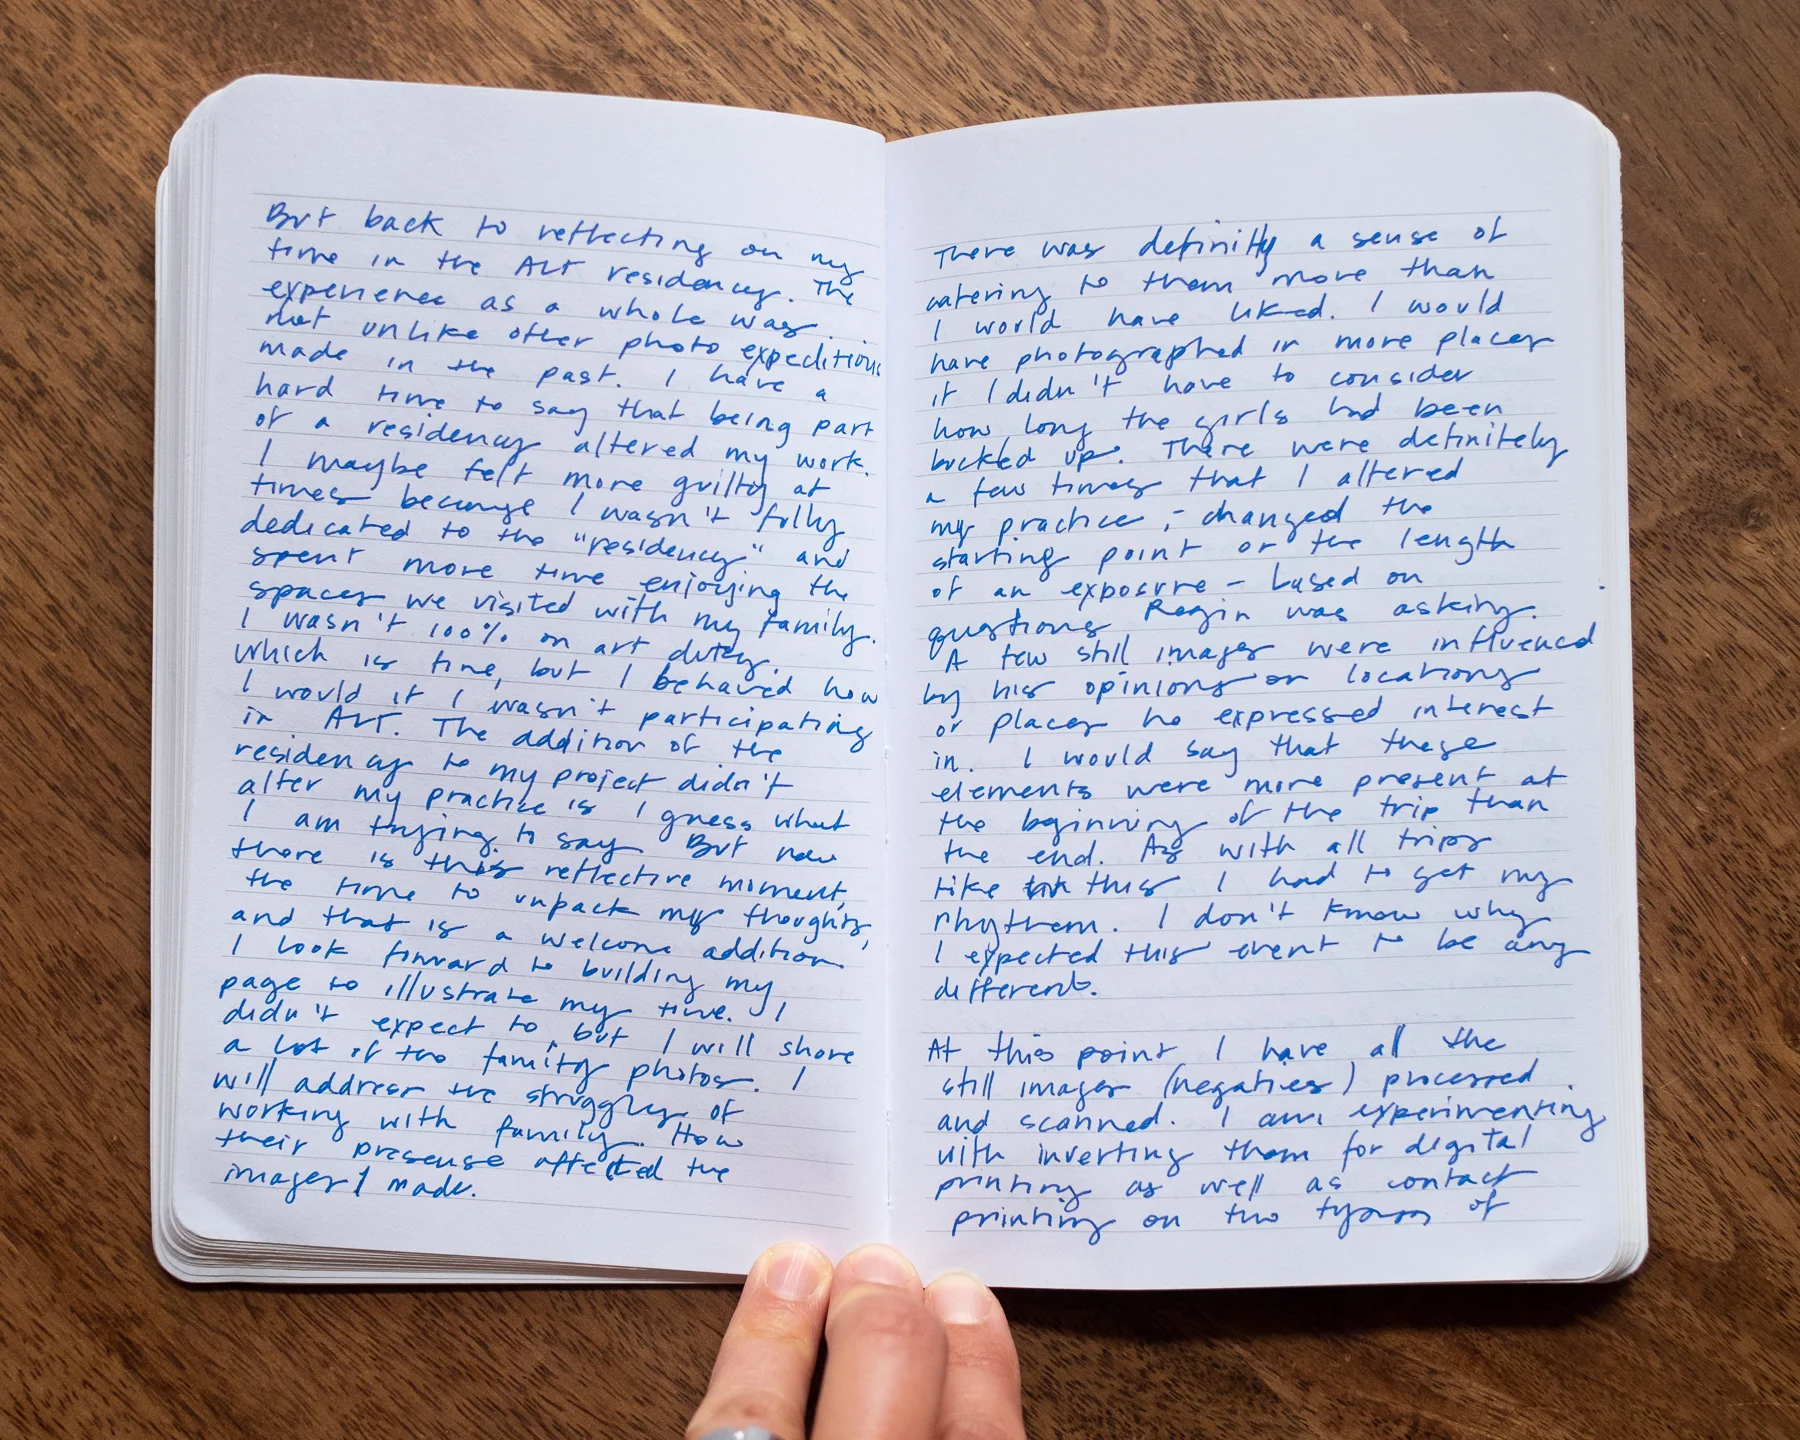 But back to reflecting on my
time in the ALT residency. The
experience as a whole was
not unlike other photo expeditions
made in the past. I have a
hard time to say that being part
of a residency altered my work.
I maybe felt more guilty at
times because I wasn't fully
dedicated to the "residency" and
spent more time enjoying the
spaces we visited with my family.
I wasn't 100% on art duty.
which is fine, but I behaved how
I would if I wasn't participating
in ALT. The addition of the
residency to my project didn't
alter my practice is I guess what
I am trying to say. But now
there is this reflective moment,
the time to unpack my thoughts,
and that is a welcome addition
I look forward to building my
page to illustrate my time. I
didn't expect to, but I will share
a lot of the family photos. I
will address the struggles of
working with family. How
their presense affected the
images I made.
There was definitly a sense of
catering to them more than
I would have liked. I would
have photographed in more places
if I didn't have to consider
how long the girls had been
bucked up. There were definitely
a few times that I altered
my practice, - changed the
starting point or the length
of an exposure - based on
questions was asking.
A few still images were influenced
by his opinions on locations
or places he expressed interest
in. I would say that these
elements were more present at
the beginning of the trip than
the end. As with all trips
like this I had to get my
rhythem. I don't know why
I expected this event to be any
different.
At this point I have all the
still images (negatives) processed
and scanned. I am experimenting
with inverting them for digital
printing as well as contact
printing on two types of